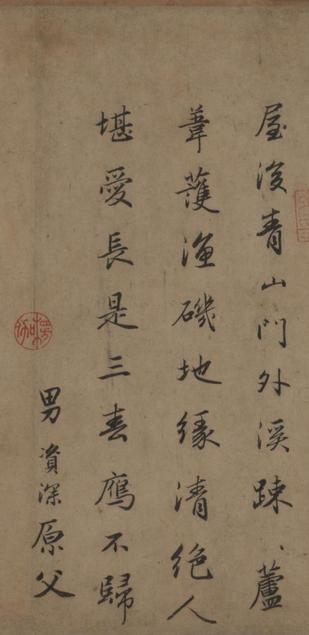 屋後青山門外溪踈、蘆
葦護漁磯地緣清絕人
堪愛長是三春鴈不歸
男資深原父